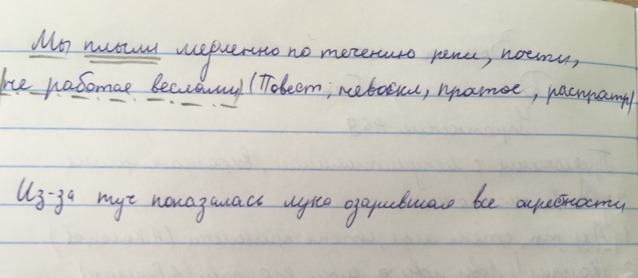 Мы плыли медленно по течению реки, почти,
|не работая веслами| (Повест, невоскл, простое, распратр)
Из-за туч показалась луна озарившая все окрестности